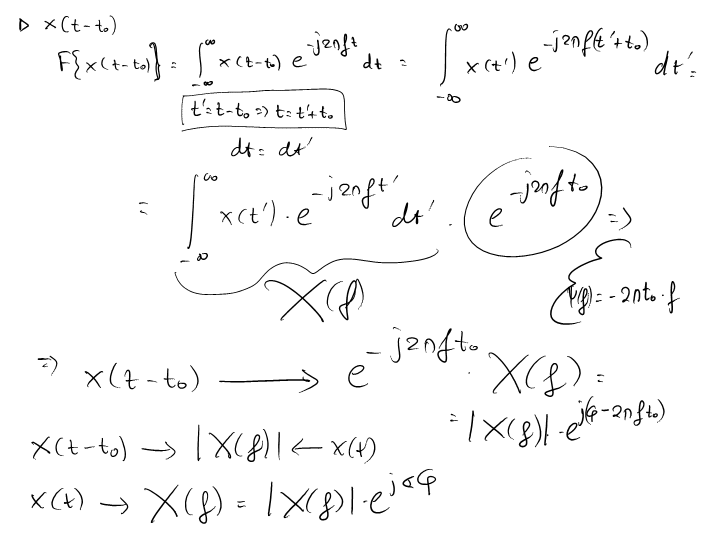 ▷ x(t-t₀)
F{x(t-t₀)} = ∫_{-∞}^{∞} x(t-t₀) e^{-j2πft} dt = ∫_{-∞}^{∞} x(t') e^{-j2πf(t'+t₀)} dt' =
t'=t-t₀ => t=t'+t₀
dt = dt'
= ∫_{-∞}^{∞} x(t')·e^{-j2πft'} dt' · e^{-j2πft₀} =>
X(f)
φ(f) = -2πt₀·f
=> x(t-t₀) ⟶ e^{-j2πft₀} · X(f) =
= |X(f)|·e^{j(φ-2πft₀)}
x(t-t₀) → |X(f)| ← x(t)
x(t) → X(f) = |X(f)|·e^{j∢φ}